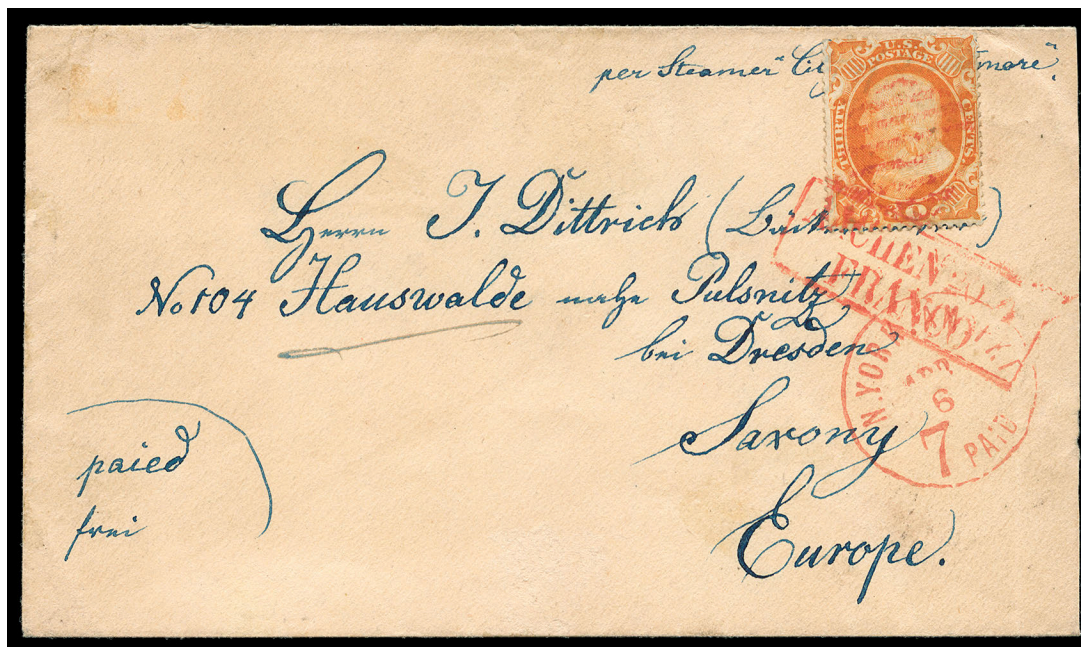 per Steamer "Ci more".
U.S.
POSTAGE
THIRTY
CENTS.
30
Herrn J. Dittrich (Bäck )
No 104 Hauswalde nahe Pulsnitz
bei Dresden
Saxony
Europe.
paied
frei
AACHEN
FRANCO
N. YORK
APR
6
7
PAID